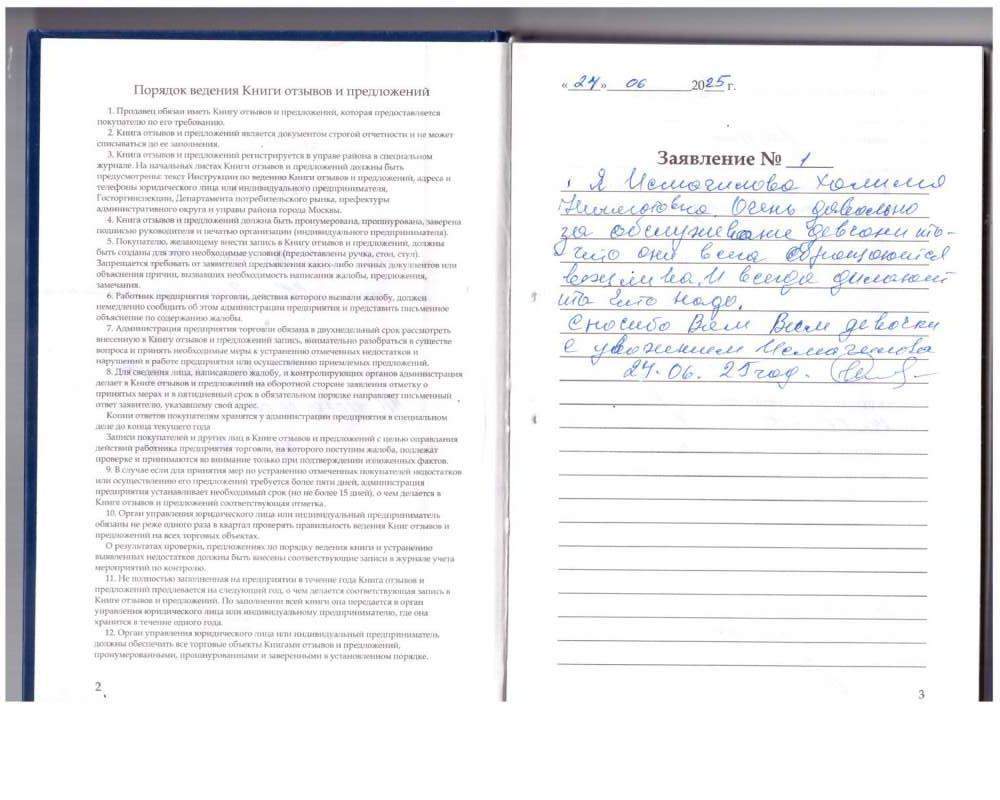 Порядок ведения Книги отзывов и предложений
1. Продавец обязан иметь Книгу отзывов и предложений, которая предоставляется
покупателю по его требованию.
2. Книга отзывов и предложений является документом строгой отчетности и не может
списываться до ее заполнения.
3. Книга отзывов и предложений регистрируется в управе района в специальном
журнале. На начальных листах Книги отзывов и предложений должны быть
предусмотрены: текст Инструкции по ведению Книги отзывов и предложений, адреса и
телефоны юридического лица или индивидуального предпринимателя,
Госторгинспекции, Департамента потребительского рынка, префектуры
административного округа и управы района города Москвы.
4. Книга отзывов и предложений должна быть пронумерована, прошнурована, заверена
подписью руководителя и печатью организации (индивидуального предпринимателя).
5. Покупателю, желающему внести запись в Книгу отзывов и предложений, должны
быть созданы для этого необходимые условия (предоставлены ручка, стол, стул).
Запрещается требовать от заявителей предъявления каких-либо личных документов или
объяснения причин, вызвавших необходимость написания жалобы, предложения,
замечания.
6. Работник предприятия торговли, действия которого вызвали жалобу, должен
немедленно сообщить об этом администрации предприятия и представить письменное
объяснение по содержанию жалобы.
7. Администрация предприятия торговли обязана в двухнедельный срок рассмотреть
внесенную в Книгу отзывов и предложений запись, внимательно разобраться в существе
вопроса и принять необходимые меры к устранению отмеченных недостатков и
нарушений в работе предприятия или осуществлению приемлемых предложений.
8. Для сведения лица, написавшего жалобу, и контролирующих органов администрация
делает в Книге отзывов и предложений на оборотной стороне заявления отметку о
принятых мерах и в пятидневный срок в обязательном порядке направляет письменный
ответ заявителю, указавшему свой адрес.
Копии ответов покупателям хранятся у администрации предприятия в специальном
деле до конца текущего года
Записи покупателей и других лиц в Книге отзывов и предложений с целью оправдания
действий работника предприятия торговли, на которого поступила жалоба, подлежат
проверке и принимаются во внимание только при подтверждении изложенных фактов.
9. В случае если для принятия мер по устранению отмеченных покупателей недостатков
или осуществлению его предложений требуется более пяти дней, администрация
предприятия устанавливает необходимый срок (но не более 15 дней), о чем делается в
Книге отзывов и предложений соответствующая отметка.
10. Орган управления юридического лица или индивидуальный предприниматель
обязаны не реже одного раза в квартал проверять правильность ведения Книг отзывов и
предложений на всех торговых объектах.
О результатах проверки, предложениях по порядку ведения книги и устранению
выявленных недостатков должны быть внесены соответствующие записи в журнале учета
мероприятий по контролю.
11. Не полностью заполненная на предприятии в течение года Книга отзывов и
предложений продлевается на следующий год, о чем делается соответствующая запись в
Книге отзывов и предложений. По заполнении всей книги она передается в орган
управления юридического лица или индивидуальному предпринимателю, где она
хранится в течение одного года.
12. Орган управления юридического лица или индивидуальный предприниматель
должны обеспечить все торговые объекты Книгами отзывов и предложений,
пронумерованными, прошнурованными и заверенными в установленном порядке.
2
« 24 » 06 2025 г.
Заявление № 1
Я Исмагилова Халима
Очень довольно
за обслуживание девчонки
что они всегда обращаются
вежлива, И всегда дилают
что надо.
Спосибо Вам Всем девочки
с уважением Исмагилова
24.06. 25 год.
3